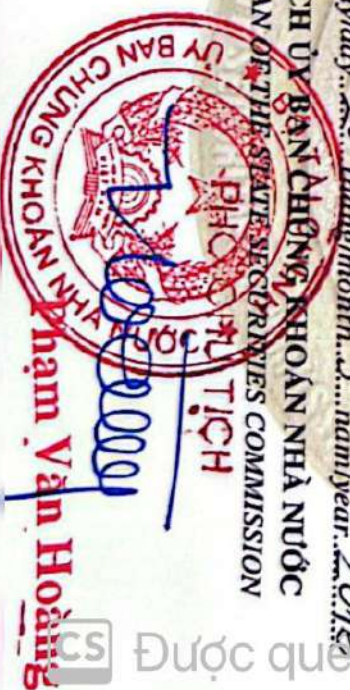 tháng/month...3...năm/year...
CH ỦY BAN CHỨNG KHOÁN NHÀ NƯỚC
AN OF THE STATE SECURITIES COMMISSION
PHÓ CHỦ TỊCH
ỦY BAN CHỨNG KHOÁN NHÀ NƯỚC
Phạm Văn Hoàng
CS Được qué